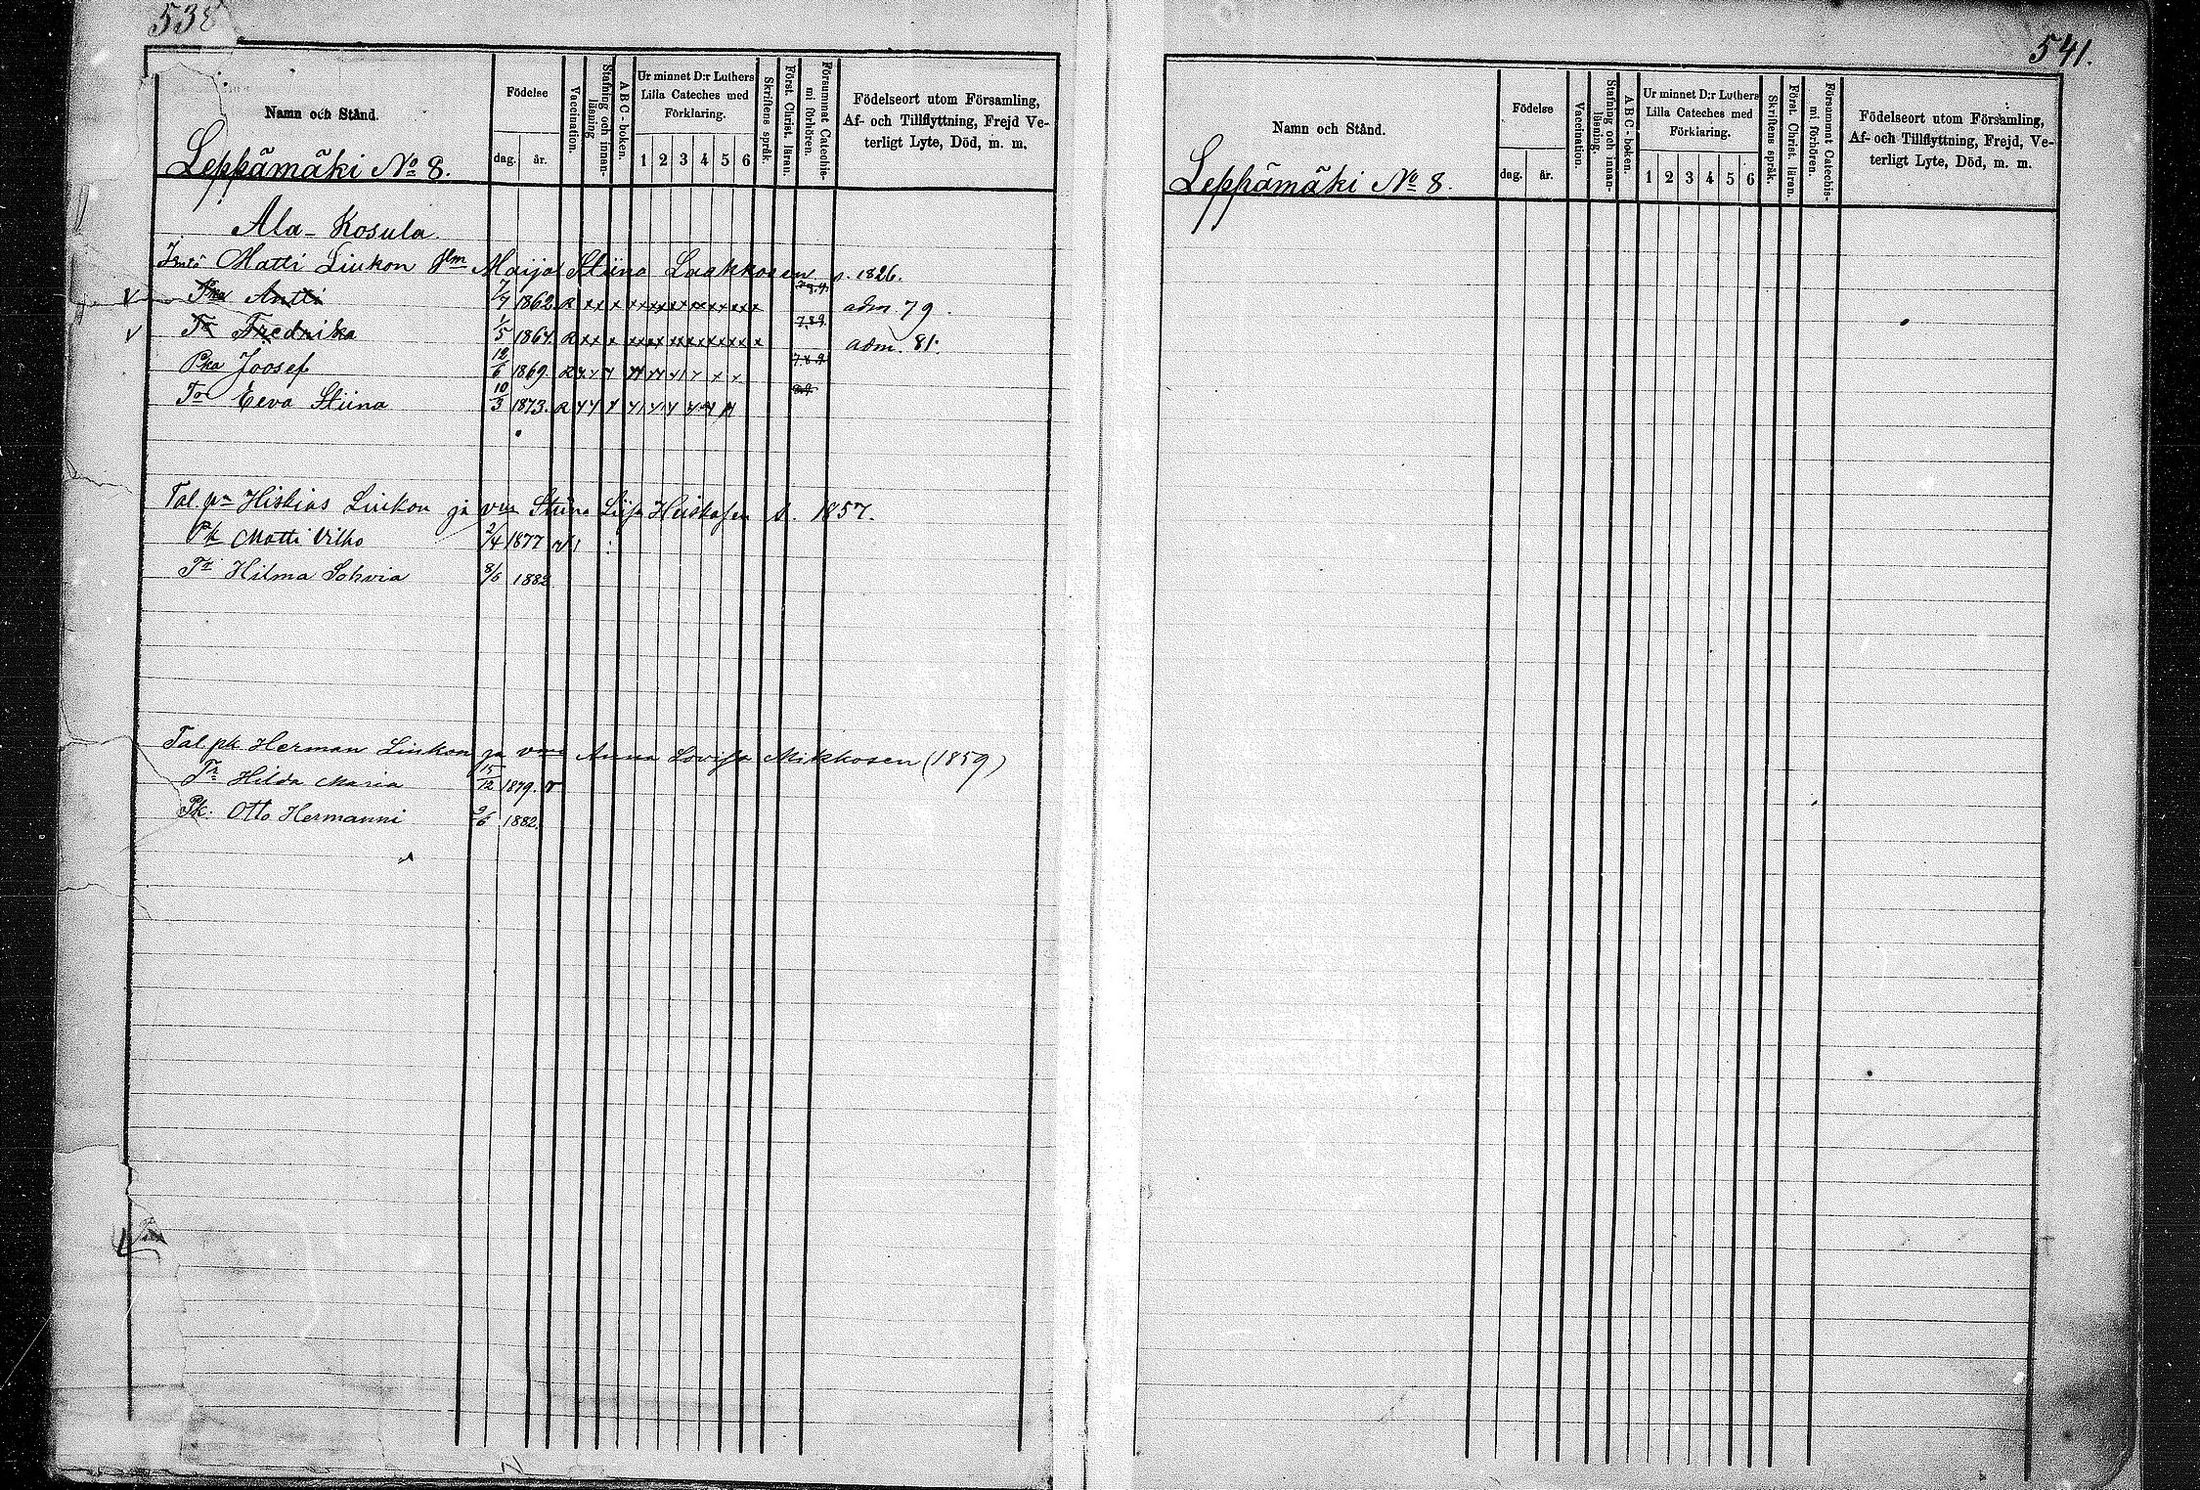 538
Namn och Stånd.
Födelse
dag. år.
Vaccination.
Stafning och innanläsning
ABC-boken.
Ur minnet D:r Luthers Lilla Cateches med Förklaring.
1 2 3 4 5 6
Skriftens språk.
Först. Christ. läran.
Försummat Catechismi förhören.
Födelseort utom Församling, Af- och Tillflyttning, Frejd Veterligt Lyte, Död, m. m.
Leppämäki No 8.
Ala-Kosula
Matti Liukon Maija Stiina Laakkosen s. 1826.
Pka Antti 7/7 1862 adm. 79.
Tr Fredrika 1/5 1864 7.8.9. adm. 81.
Pka Joosef 12/6 1869. 7.8.9.
Tr Eeva Stiina 10/3 1873. 8.9.
Tal. pn Hiskias Liukon ja vm Stiina Liisa Heiskasen s. 1857.
Pk Matti Vilho 2/4 1877
Tr Hilma Sohvia 8/6 1882
Tal. pk Herman Liukon ja vmo Anna Lovisa Mikkosen (1859)
Tr Hilda Maria 15/12 1879.
Pk: Otto Hermanni 2/6 1882.
541.
Namn och Stånd.
Födelse
dag. år.
Vaccination.
Stafning och innanläsning.
ABC-boken.
Ur minnet D:r Luthers Lilla Cateches med Förklaring.
1 2 3 4 5 6
Skriftens språk.
Först. Christ. läran.
Försummat Catechismi förhören.
Födelseort utom Församling, Af- och Tillflyttning, Frejd, Veterligt Lyte, Död, m. m.
Leppämäki No 8.